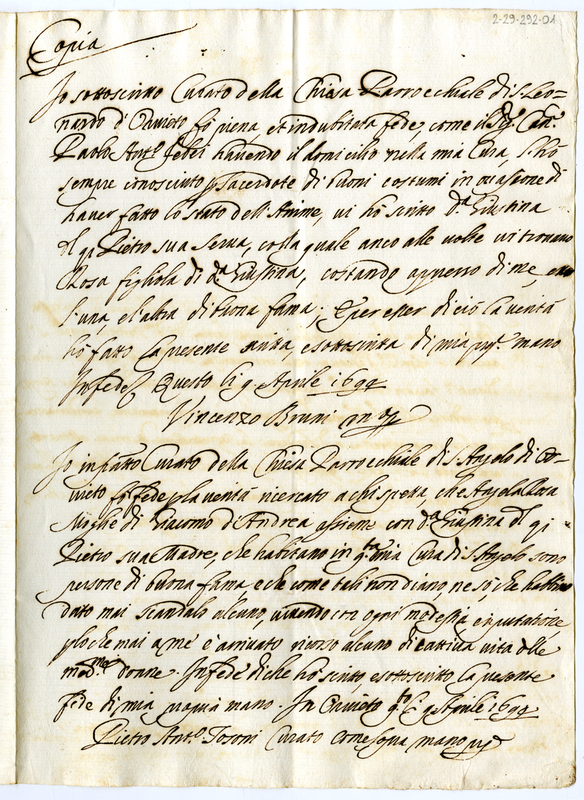 2-29-292-01
Copia
Io sottoscritto Curato della Chiesa Parrocchiale di S. Leo-
nardo d'Orvieto fo piena, et indubitata fede, come il Sig. Can.
Paolo Ant.o Febei havendo il domicilio nella mia Cura, l'hò
sempre conosciuto p Sacerdote di buoni costumi in occasione di
haver fatto lo stato dell'Anime, vi hò scritto d.a Giustina
del q. Pietro sua serva, colla quale anco alle volte vi trovavo
Rosa figliola di d.a Giustina, costando appresso di me,
l'una, e l'altra di buona fama; E per esser di ciò la verità
hò fatto la presente scritta, e sottoscritta di mia pp. mano
In fede Questo li 9. Aprile 1692
Vincenzo Bruni m pp
Io infratto Curato della Chiesa Parrocchiale di S. Angelo di Or-
vieto fo fede p la verità ricercato a chi spetta, che Angela Rosa
Moglie di Giacomo d'Andrea assieme con d.a Giustina del q.
Pietro sua Madre, che habitano in q.ta mia Cura di S. Angelo sono
persone di buona fama e che come tali non diano, ne sò, che habbino
dato mai scandalo alcuno, vivendo con ogni modestia e riputatione
p lo che mai a me è arrivato ricorso alcuno di cattiva vita delle
med.me donne. In fede di che hò scritto, e sottoscritto la presente
fede di mia propria mano. In Orvieto q.to li 9 Aprile 1692
Pietro Ant.o Tosoni Curato come sopra mano pp